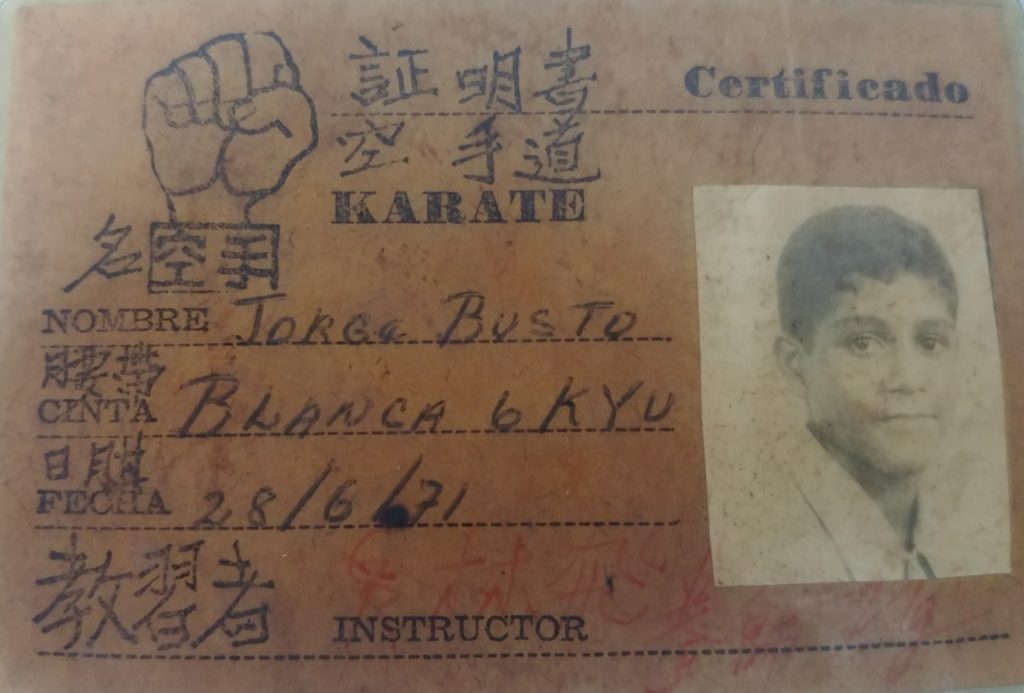 証明書 Certificado
空手道
KARATE
名 空手
NOMBRE Jorge Busto
腰帯
CINTA BLANCA 6 KYU
日期
FECHA 28/6/71
教習者
INSTRUCTOR